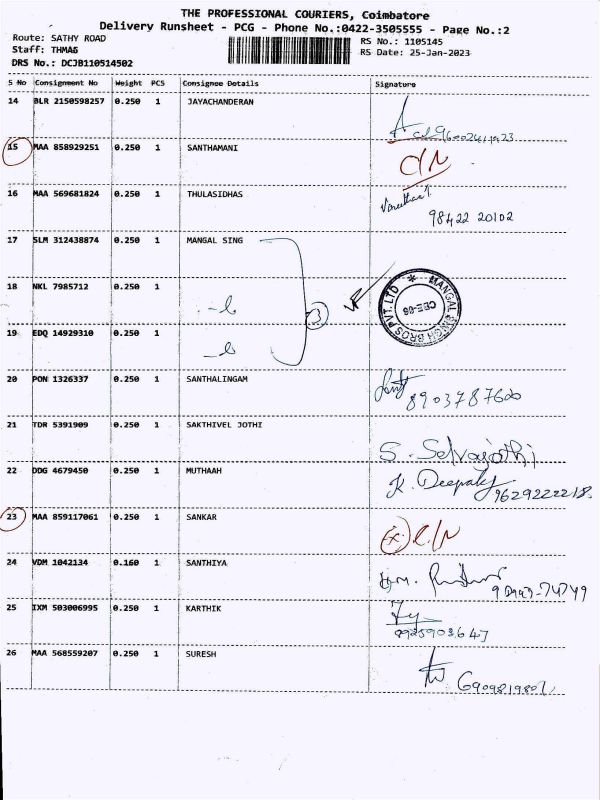 THE PROFESSIONAL COURIERS, Coimbatore
Delivery Runsheet - PCG - Phone No.:0422-3505555 - Page No.:2
Route: SATHY ROAD
RS No.: 1105145
Staff: THMAS
RS Date: 25-Jan-2023
DRS No.: DCJB110514502
S No Consignment No Weight PCS Consignee Details Signature
14 BLR 2150598257 0.250 1 JAYACHANDERAN
15 MAA 858929251 0.250 1 SANTHAMANI
16 MAA 569681824 0.250 1 THULASIDHAS
98422 20102
17 SLM 312438874 0.250 1 MANGAL SING
18 NKL 7985712 0.250 1
3
MANGAL SINGH BROS PVT. LTD
CBE-06
19 EDQ 14929310 0.250 1
20 PON 1326337 0.250 1 SANTHALINGAM
8903787600
21 TDR 5391909 0.250 1 SAKTHIVEL JOTHI
S. Selvajothi
22 DDG 4679450 0.250 1 MUTHAAH
K. Deepak 9629222218
23 MAA 859117061 0.250 1 SANKAR
24 VDM 1042134 0.160 1 SANTHIYA
25 IXM 503006995 0.250 1 KARTHIK
26 MAA 568559207 0.250 1 SURESH